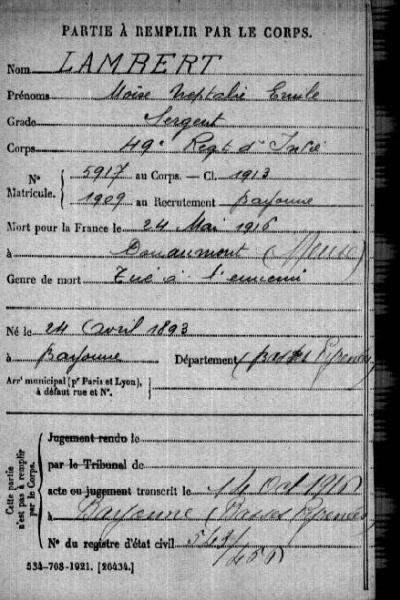 PARTIE À REMPLIR PAR LE CORPS.
Nom LAMBERT
Prénoms Moïse Nephtalie Emile
Grade Sergent
Corps 49e Regt d'Infie
N° Matricule. 5917 au Corps. — Cl. 1913
1909 au Recrutement Bayonne
Mort pour la France le 24 Mai 1916
à Douaumont (Meuse)
Genre de mort Tué à l'ennemi
Né le 24 Avril 1893
à Bayonne Département (Basses Pyrénées)
Arrt municipal (pr Paris et Lyon),
à défaut rue et N°.
Cette partie
n'est pas à remplir
par le Corps.
Jugement rendu le
par le Tribunal de
acte ou jugement transcrit le 14 Oct 1916
à Bayonne (Basses Pyrénées)
N° du registre d'état civil
534-708-1921. [26434.]